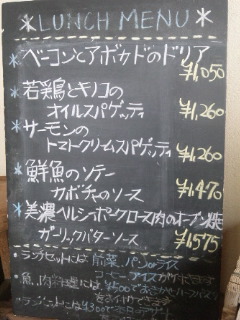 *LUNCH MENU*
*ベーコンとアボカドのドリア
¥1,050
*若鶏とキノコの
オイルスパゲッティ ¥1,260
*サーモンの
トマトクリームスパゲッティ
¥1,260
*鮮魚のソテー
カボチャのソース ¥1,470
*美濃ヘルシーポークロース肉のオーブン焼
ガーリックバターソース ¥1,575
*ランチセットには 前菜、パン
コーヒー アイス
*魚、肉料理には ¥500で
*ランチセットには ¥300で